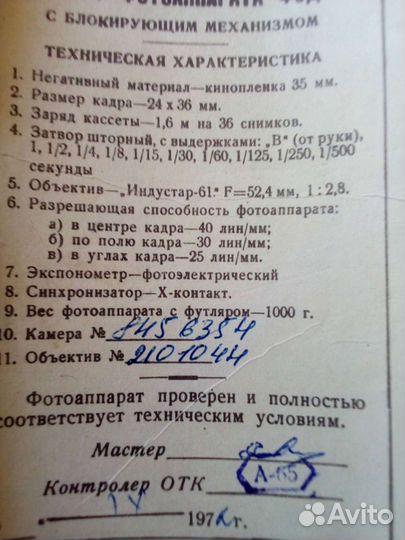 ФОТОАППАРАТА
С БЛОКИРУЮЩИМ МЕХАНИЗМОМ
ТЕХНИЧЕСКАЯ ХАРАКТЕРИСТИКА
1. Негативный материал—кинопленка 35 мм.
2. Размер кадра—24 х 36 мм.
3. Заряд кассеты—1,6 м на 36 снимков.
4. Затвор шторный, с выдержками: „В" (от руки),
1, 1/2, 1/4, 1/8, 1/15, 1/30, 1/60, 1/125, 1/250, 1/500
секунды
5. Объектив—„Индустар-61." F=52,4 мм, 1 : 2,8.
6. Разрешающая способность фотоаппарата:
а) в центре кадра—40 лин/мм;
б) по полю кадра—30 лин/мм;
в) в углах кадра—25 лин/мм.
7. Экспонометр—фотоэлектрический
8. Синхронизатор—Х-контакт.
9. Вес фотоаппарата с футляром—1000 г.
10. Камера № 8456354
11. Объектив № 2101044
Фотоаппарат проверен и полностью
соответствует техническим условиям.
Мастер
Контролер ОТК А-65
IV 1972 г.
Avito